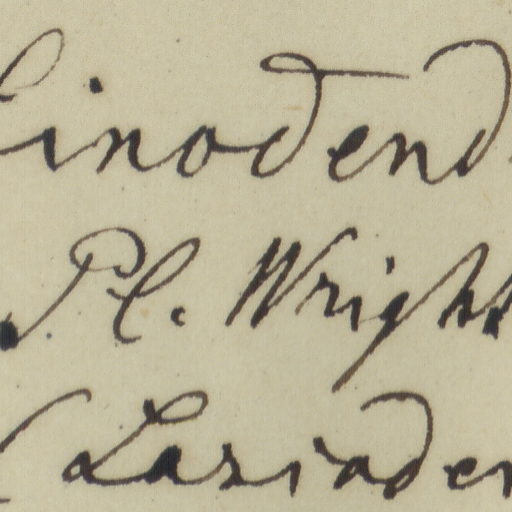 inodend
Pl. Wright
(Lasiaden